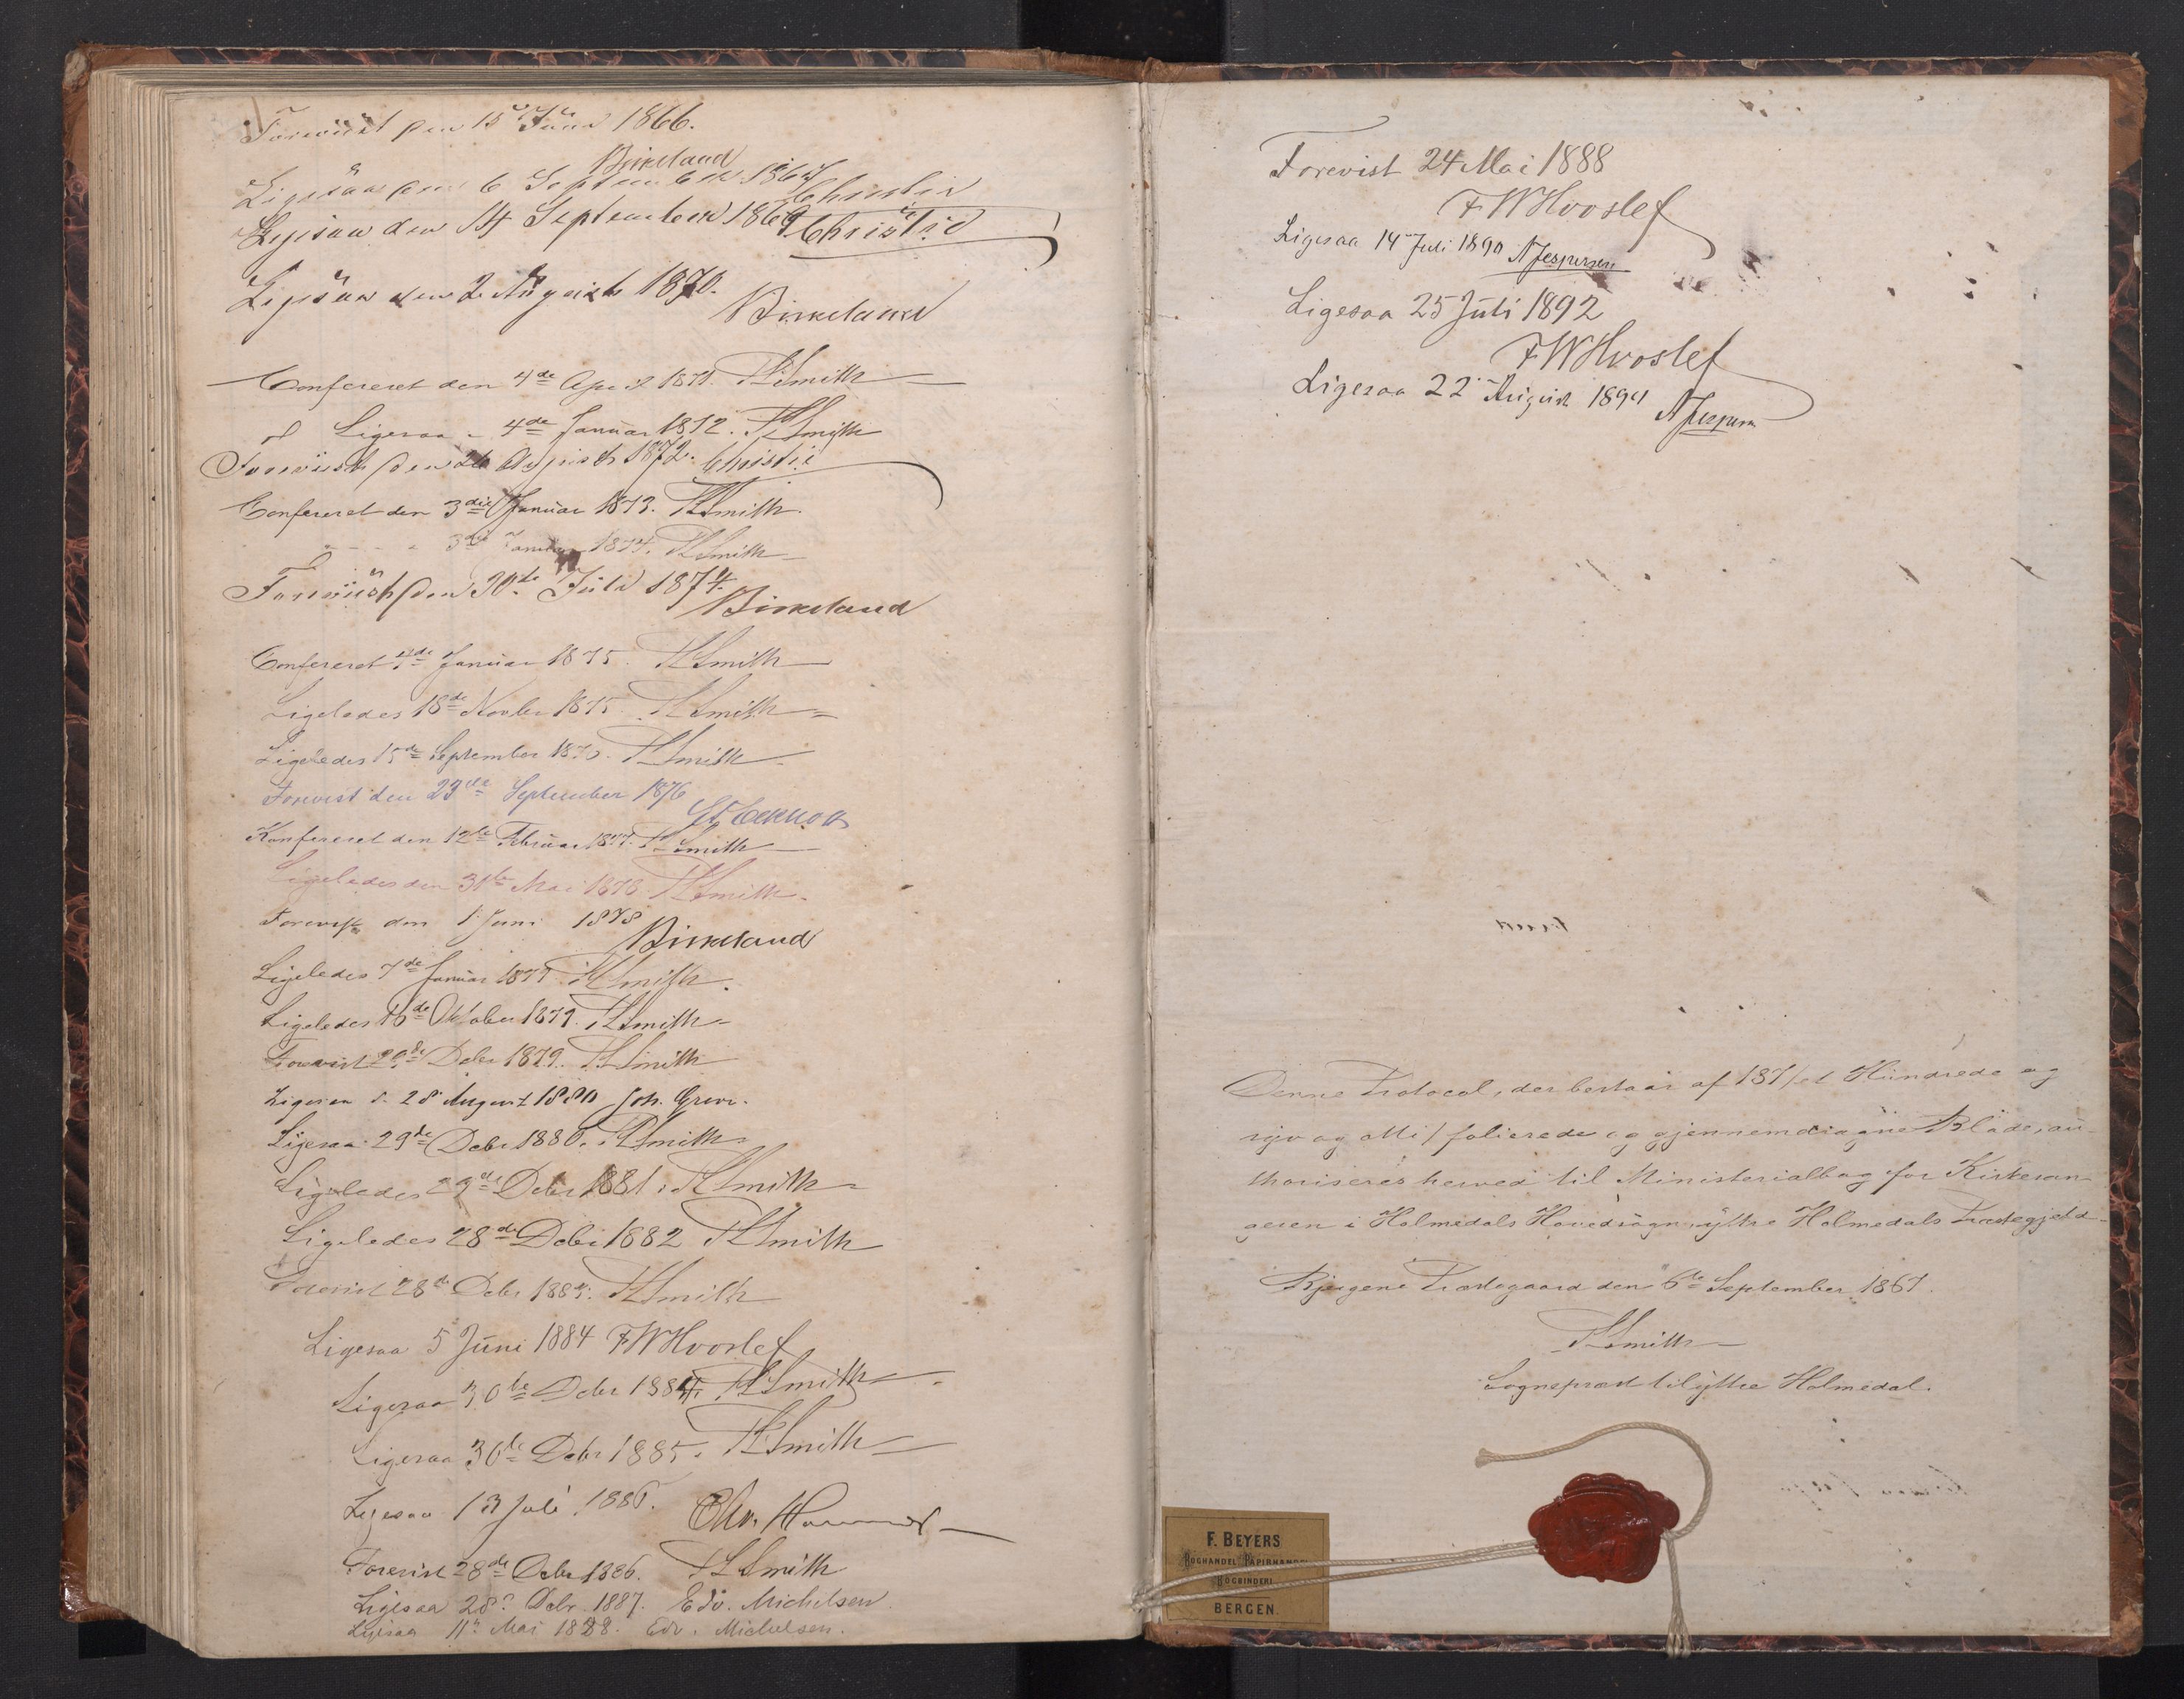 Foreviist den 15de Juni 1866.
Birkeland
Ligesaa den 6 September 1867 Christie
Ligesaa den 14 September 1869 Christie
Ligesaa den 2 August 1870.
Birkeland
Confereret den 4de April 1871. FLSmith
Ligesaa - 4de Januar 1872. FLSmith
Foreviist den August 1872. Christie
Confereret den 3die Januar 1873. FLSmith.
3die Januar 1874. FLSmith
Foreviist den 30te Juli 1874.
Birkeland
Confereret Januar 1875. FLSmith
Ligeledes 18de Novbr 1875. FLSmith
Ligeledes 15de September 1876. FLSmith
Forevist den 23de September 1876
Konfereret den 12te Februar 1877. FLSmith
Ligeledes den 31te Mai 1878. FLSmith.
Forevist den 1 Juni 1878
Birkeland
Ligeledes 7de Januar 1879. FLSmith.
Ligeledes 16de Oktober 1879. FLSmith
Forevist 29de Debr 1879. FLSmith
Ligesaa d. 28 August 1880 Joh. Greve.
Ligesaa 29de Debr 1880. FLSmith
Ligeledes 29de Debr 1881. FLSmith
Ligeledes 28de Debr 1882 FLSmith
Forevist 28de Debr 1883. FLSmith
Ligesaa 5 Juni 1884 FWHvoslef
Ligesaa 30te Debr 1884. FLSmith
Ligesaa 30te Debr 1885. FLSmith
Ligesaa 13 Juli 1886. Chr.
Forevist 28de Debr 1886. FLSmith
Ligesaa 28de Debr. 1887. Edv. Michelsen
Ligesaa 11te Mai 1888. Edv. Michelsen.
Forevist 24 Mai 1888
FWHvoslef
Ligesaa 14 Juli 1890 NJespersen
Ligesaa 25 Juli 1892
FWHvoslef
Ligesaa 22 August 1894 NJespersen
Denne Protocol, der bestaar af 187/et Hundrede og
syv og otti/ folierede og gjennemdragne Blade, au-
thoriseres herved til Ministerialbog for Kirkesan-
geren i Holmedals Hovedsogn, yttre Holmedals Præstegjeld.
Bjergene Præstegaard den 6te September 1867.
FLSmith
Sognepræst til yttre Holmedal.
F. BEYERS
BOGHANDEL PAPIRHANDEL
BOGBINDERI
BERGEN.